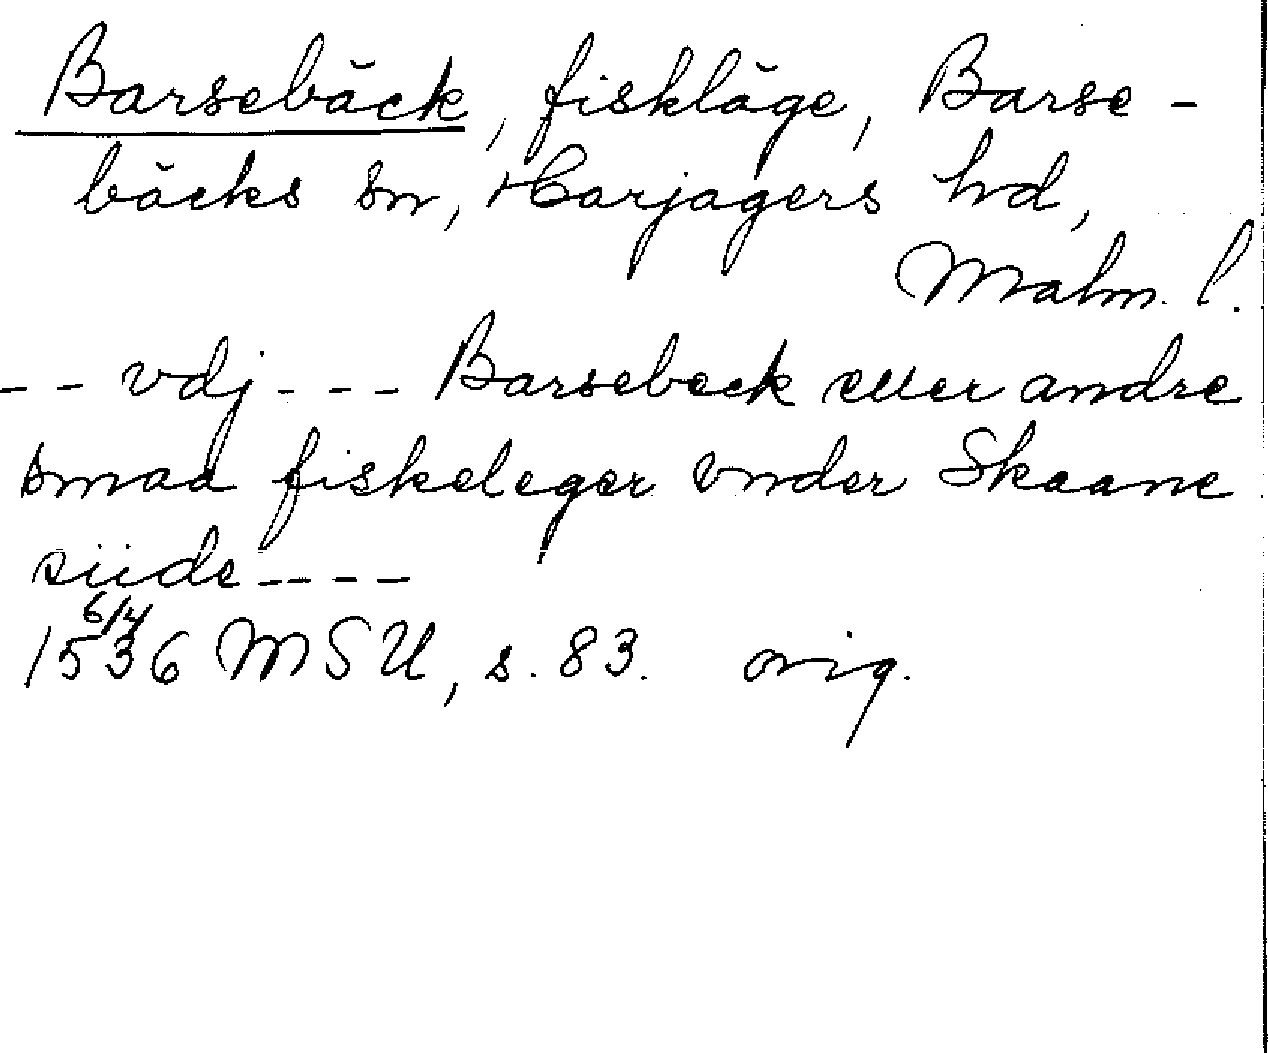 Barsebäck, fiskläge, Barse-
bäcks sn, Harjagers hd,
Malm. l.
-- vdj --- Barsebeck eller andre
smaa fiskeleger vnder Skaane
siide ----
6/4
1536 MSU, s. 83. orig.